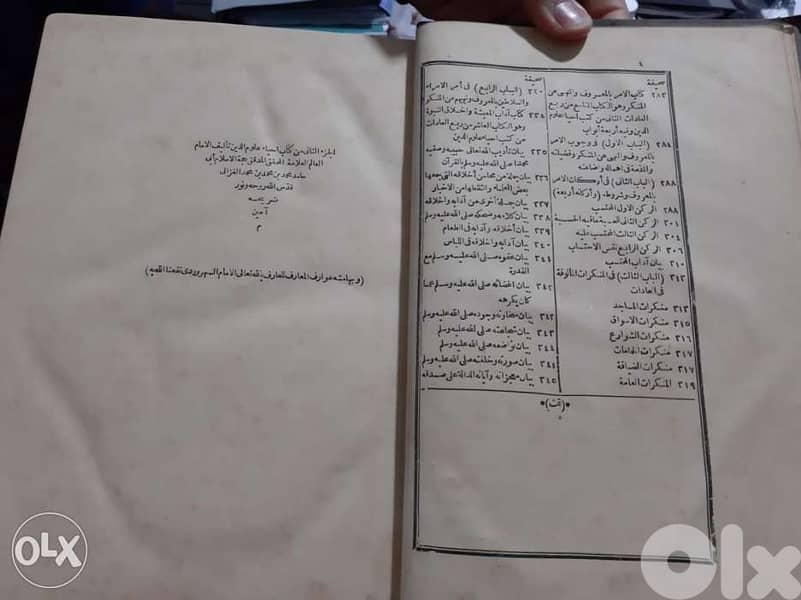 ٤
صحيفة
٢٨٣ كتاب الامر بالمعروف والنهى عن
المنكر وهو الكتاب التاسع من ربع
العادات الثانى من كتب احياء علوم
الدين وفيه أربعة أبواب
٢٨٤ (الباب الاول) فى وجوب الامر
بالمعروف والنهى عن المنكر وفضيلته
والمذمة فى اهماله واضاعته
٢٨٨ (الباب الثانى) فى أركان الامر
بالمعروف وشروطه (وأركانه أربعة)
٢٨٨ الركن الاول المحتسب
٣٠١ الركن الثانى للحسبة مافيه الحسبة
٣٠٤ الركن الثالث المحتسب عليه
٣٠٦ الركن الرابع نفس الاحتساب
٣١٠ بيان آداب المحتسب
(الباب الثالث) فى المنكرات المألوفة
فى العادات
٣١٣ منكرات المساجد
٣١٥ منكرات الاسواق
٣١٦ منكرات الشوارع
٣١٧ منكرات الحمامات
٣١٧ منكرات الضيافة
٣١٩ المنكرات العامة
صحيفة
٣٢٠ (الباب الرابع) فى أمر الامراء
والسلاطين بالمعروف ونهيهم عن المنكر
كتاب آداب المعيشة واخلاق النبوة
وهو الكتاب العاشر من ربع العادات
من كتب احياء علوم الدين
بيان تأديب الله تعالى حبيبه وصفيه
محمدا صلى الله عليه وسلم بالقرآن
بيان جملة من محاسن أخلاقه التى جمعها
بعض العلماء والتقطها من الاخبار
بيان جملة أخرى من آدابه وأخلاقه
بيان كلامه وضحكه صلى الله عليه وسلم
بيان أخلاقه وآدابه فى الطعام
بيان آدابه وأخلاقه فى اللباس
بيان عفوه صلى الله عليه وسلم مع
القدرة
بيان اغضائه صلى الله عليه وسلم عما
كان يكرهه
بيان سخاوته وجوده صلى الله عليه وسلم
بيان شجاعته صلى الله عليه وسلم
بيان تواضعه صلى الله عليه وسلم
بيان صورته وخلقته صلى الله عليه وسلم
٣٤٥ بيان معجزاته وآياته الدالة على صدقه
*(تمت)*
الجزء الثانى من كتاب احياء علوم الدين تأليف الامام
العالم العلامة المحقق المدقق حجة الاسلام أبى
حامد محمد بن محمد بن محمد الغزالى
قدس الله روحه ونور
ضريحه
آمين
م
(وبهامشه عوارف المعارف للعارف بالله تعالى الامام السهروردى نفعنا الله به)
OLX
OLX